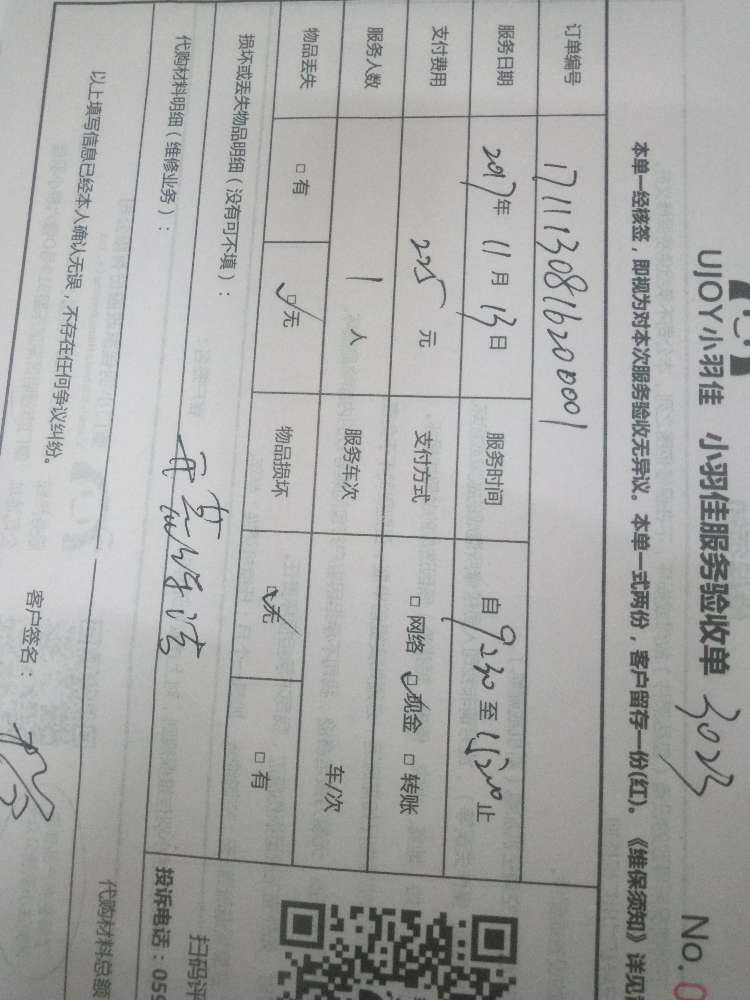 UJOY小羽佳 小羽佳服务验收单 3025 No.0
本单一经核签，即视为对本次服务验收无异议。本单一式两份，客户留存一份(红)。《维保须知》详见
订单编号 171113081620001
服务日期 2017年 11月 13日 服务时间 自 9:30 至 止
支付费用 225 元 支付方式 □网络 □现金 □转账
服务人数 1 人 服务车次 车/次
物品丢失 □有 □无 物品损坏 □无 □有
损坏或丢失物品明细（没有可不填）：
代购材料明细（维修业务）：
以上填写信息已经本人确认无误，不存在任何争议纠纷。
客户签名：
代购材料总额
扫码评
投诉电话：059